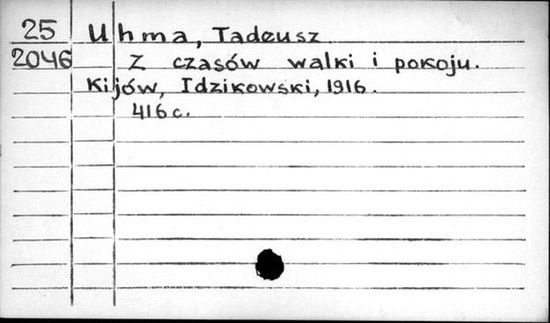 25 Uhma, Tadeusz
2046 Z czasów walki i pokoju.
Kijów, Idzikowski, 1916.
416 c.